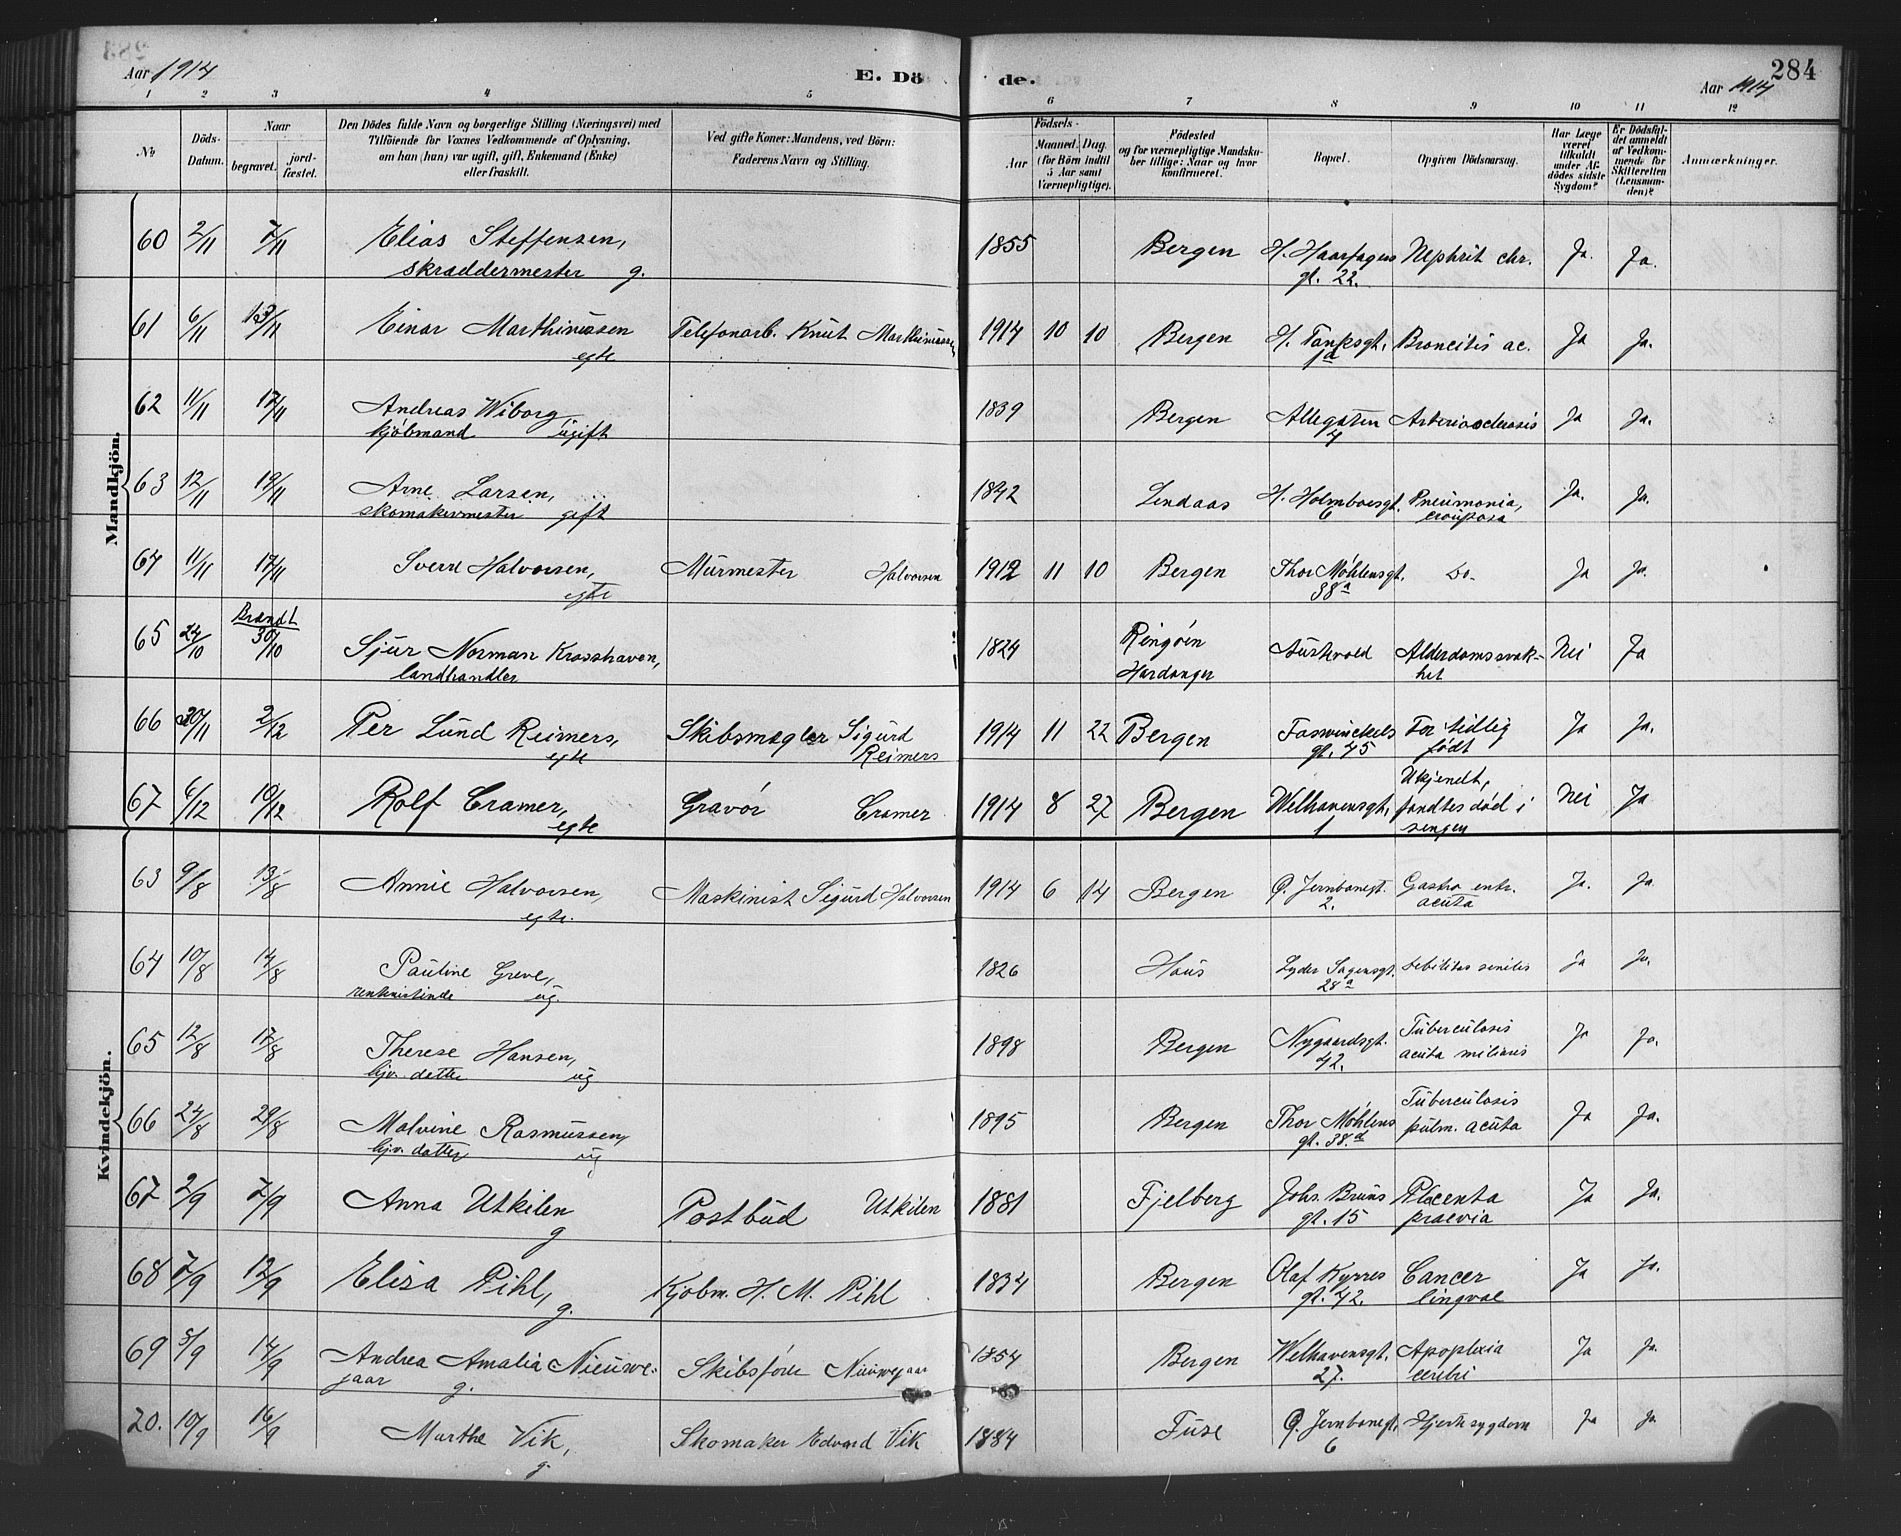 284
Aar 1914 E. Dö de. Aar 1914
1 2 3 4 5 6 7 8 9 10 11 12
No. Döds-Datum. Naar begravet. jord-fæstet. Den Dödes fulde Navn og borgerlige Stilling (Næringsvei) med Tilföiende for Voxnes Vedkommende af Oplysning, om han (hun) var ugift, gift, Enkemand (Enke) eller fraskilt. Ved gifte Koner: Mandens, ved Börn: Faderens Navn og Stilling. Födsels- Aar Maaned. Dag. (for Börn indtil 5 Aar samt Værnepligtige). Födested og for værnepligtige Mandskaber tillige: Naar og hvor konfirmeret. Bopæl. Opgiven Dödsaarsag. Har Læge været tilkaldt under Afdödes sidste Sygdom? Er Dödsfaldet anmeldt af Vedkommende for Skifteretten (Lensmanden)? Anmærkninger.
Mandkjön.
60 2/11 7/11 Elias Steffensen, 1855 Bergen H. Haarfagers Nephrit chr. Ja. Ja.
skræddermester g. gt. 22.
61 6/11 13/11 Einar Marthinussen Telefonarb. Knut Marthinussen 1914 10 10 Bergen H. Tanksgt. Broncitis ac. Ja Ja.
egte 1a
62 11/11 17/11 Andreas Wiborg 1839 Bergen Allegaten Arteriosclerosis Ja Ja.
kjöbmand ugift 4
63 12/11 19/11 Arne Larsen, 1842 Lindaas H. Holmboesgt. Pneumonia, Ja. Ja.
skomakermester gift 6 crouposa
64 11/11 17/11 Sverd Halvorsen, Murmester Halvorsen 1912 11 10 Bergen Thor Möhlensgt. Do. Ja Ja.
egte 38a
65 24/10 Brændt 30/10 Sjur Norman Krosshaven, 1824 Ringöen Aurkvold Alderdomssvak- Nei Ja
landhandler Hardanger het
66 30/11 2/12 Per Lund Reimers, Skibsmægler Sigurd 1914 11 22 Bergen Foswinckels For tidlig Ja Ja.
egte Reimers gt. 45 födt
67 6/12 10/12 Rolf Cramer, Gravör Cramer 1914 8 27 Bergen Welhavensgt. Ukjendt, fandtes död i Nei Ja
egte 1 sengen
Kvindekjön.
63 9/8 13/8 Annie Halvorsen, Maskinist Sigurd Halvorsen 1914 6 14 Bergen Ö. Jernbanegt. Gastro entr. Ja. Ja.
egte. 2. acuta
64 10/8 14/8 Pauline Greve, 1826 Haus Lyder Sagensgt. Debilitas senilis Ja Ja.
ug. 28a
65 12/8 17/8 Therese Hansen, 1898 Bergen Nygaardsgt. Tuberculosis Ja Ja.
hjv. datter ug 42. acuta miliaris
66 24/8 29/8 Malvine Rasmussen, 1895 Bergen Thor Möhlens Tuberculosis Ja Ja.
hjv. datter ug gt. 38.d pulm. acuta
67 2/9 7/9 Anna Utkilen Postbud Utkilen 1881 Fjelberg Johs. Bruns Placenta Ja Ja.
g gt. 15 praevia
68 7/9 12/9 Elisa Pihl, Kjöbm. H. M. Pihl 1834 Bergen Olaf Kyrres Cancer Ja Ja.
g. gt. 42. lingvae
69 8/9 14/9 Andrea Amalia Nieuwe- Skibsförer Nieuwejaar 1854 Bergen Welhavensgt. Apoplexia Ja Ja.
jaar g. 27. cerebri
70. 10/9 16/9 Marthe Vik, Skomaker Edvard Vik 1884 Fuse Ö. Jernbanegt. Hjertesygdom Ja Ja.
g. 6